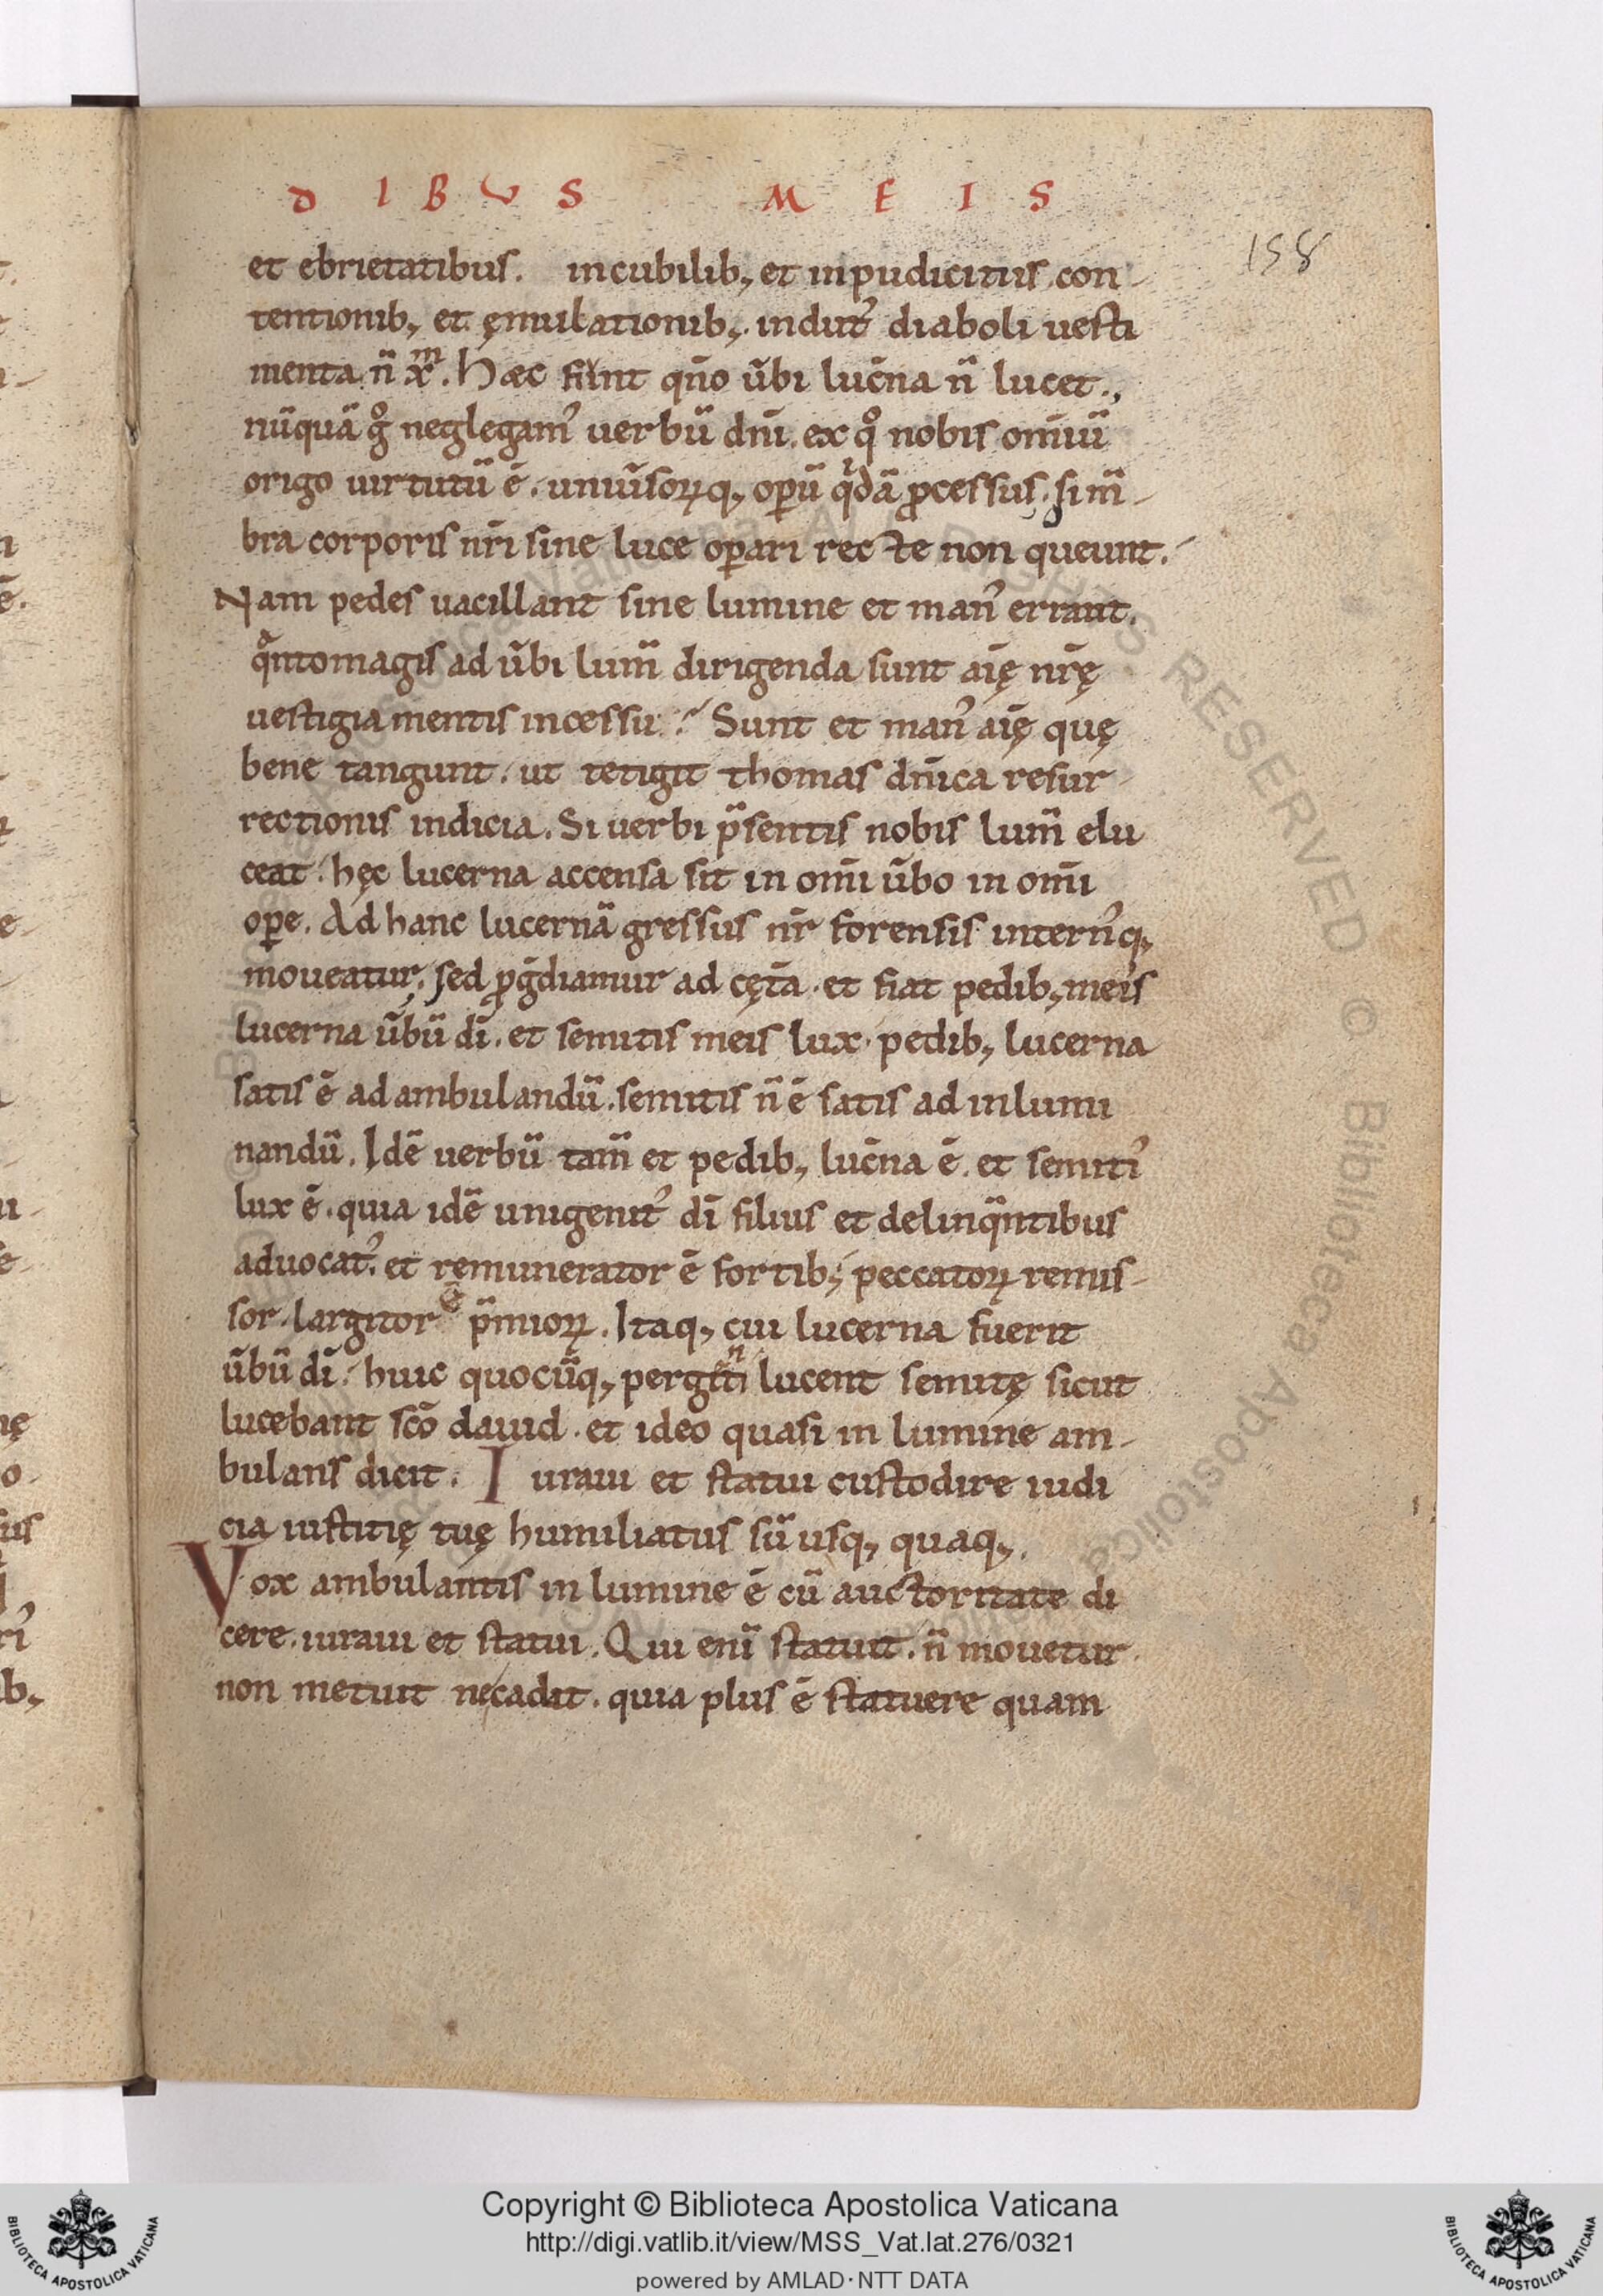 D I B V S M E I S
158
et ebrietatibus. in cubilib; et inpudicitiis con-
tentionib; et ęmulationib; indut᾿ diaboli uesti
menta n̄ xp̄m. Haec fiunt qn̄o ūbi luc̄na n̄ lucet.,
nūquā gͦ neglegam᾿ uerbū dn̄i. ex qͦ nobis om̄iū
origo uirtutū ē. uniūsoꝝq; oꝑū qͥdā ꝓcessus. si m̄-
bra corporis nr̄i sine luce oꝑari recte non queunt.
Nam pedes uacillant sine lumine et man᾿ errant.
qᷓnto magis ad ūbi lum̄ dirigenda sunt aīę nr̄ę
uestigia mentis incessu. Sunt et man᾿ aīę quę
bene tangunt. ut tetigit thomas dn̄ica resur-
rectionis indicia. Si uerbi p̄sentis nobis lum̄ elu
ceat. hęc lucerna accensa sit in om̄i ūbo in om̄i
oꝑe. Ad hanc lucernā gressus nr̄ forensis intern᾿q;
moueatur. sed ꝓgᷓdiamur ad cęt̄a. et fiat pedib; meis
lucerna ūbū dī. et semitis meis lux. pedib; lucerna
satis ē ad ambulandū. semitis n̄ ē satis ad inlumi
nandū. Idē uerbū tam̄ et pedib; luc̄na ē. et semit᾿
lux ē. quia idē unigenit᾿ dī filius et delinqᷓntibus
aduocat᾿. et remunerator ē fortib; peccatoꝝ remis-
sor. largitor ē p̄mioꝝ. Itaq; cui lucerna fuerit
ūbū dī. huic quocūq; pergenti lucent semitę sicut
lucebant sc̄o dauid. et ideo quasi in lumine am-
bulans dicit. Iuraui et statui custodire iudi
cia iustitię tuę humiliatus sū usq; quaq;.
Vox ambulantis in lumine ē cū auctoritate di
cere. iuraui et statui. Qui enī statuit. n̄ mouetur.
non metuit ne cadit. quia plus ē statuere quam
Copyright © Biblioteca Apostolica Vaticana
http://digi.vatlib.it/view/MSS_Vat.lat.276/0321
powered by AMLAD·NTT DATA